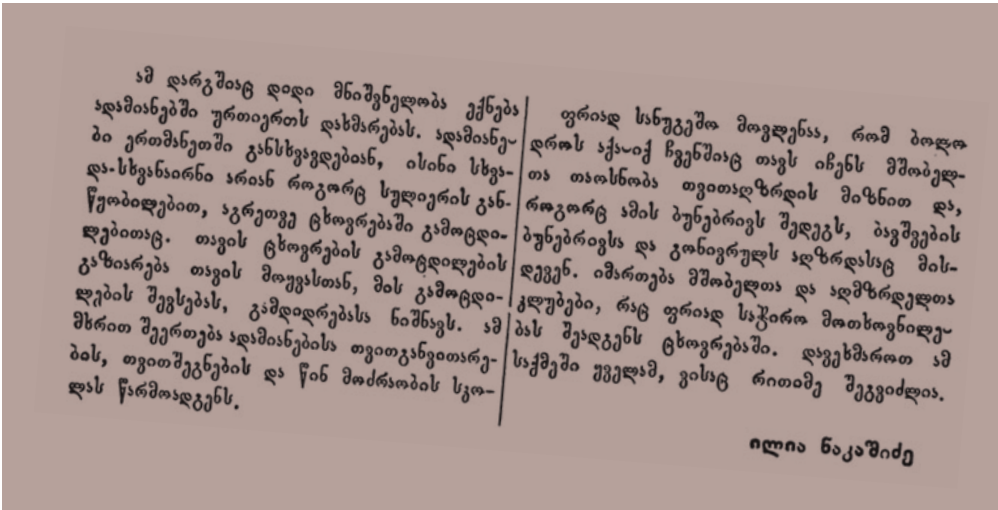 ამ დარგშიაც დიდი მნიშვნელობა ექნება
ადამიანებში ურთიერთს დახმარებას. ადამიანე-
ბი ერთმანეთში განსხვავდებიან, ისინი სხვა-
და-სხვანაირნი არიან როგორც სულიერის გან-
წყობილებით, აგრეთვე ცხოვრებაში გამოცდი-
ლებითაც. თავის ცხოვრების გამოცდილების
გაზიარება თავის მოყვასთან, მის გამოცდი-
ლების შევსებას, გამდიდრებასა ნიშნავს. ამ
მხრით შეერთება ადამიანებისა თვითგანვითარე-
ბის, თვითშეგნების და წინ მოძრაობის სკო-
ლას წარმოადგენს.
ფრიად სანუგეშო მოვლენაა, რომ ბოლო
დროს აქა-იქ ჩვენშიაც თავს იჩენს მშობელ-
თა თაოსნობა თვითაღზრდის მიზნით და,
როგორც ამის ბუნებრივს შედეგს, ბავშვების
ბუნებრივსა და გონივრულს აღზრდასაც მის-
დევენ. იმართება მშობელთა და აღმზრდელთა
კლუბები, რაც ფრიად საჭირო მოთხოვნილე-
ბას შეადგენს ცხოვრებაში. დავეხმაროთ ამ
საქმეში ყველამ, ვისაც რითიმე შეგვიძლია.
ილია ნაკაშიძე